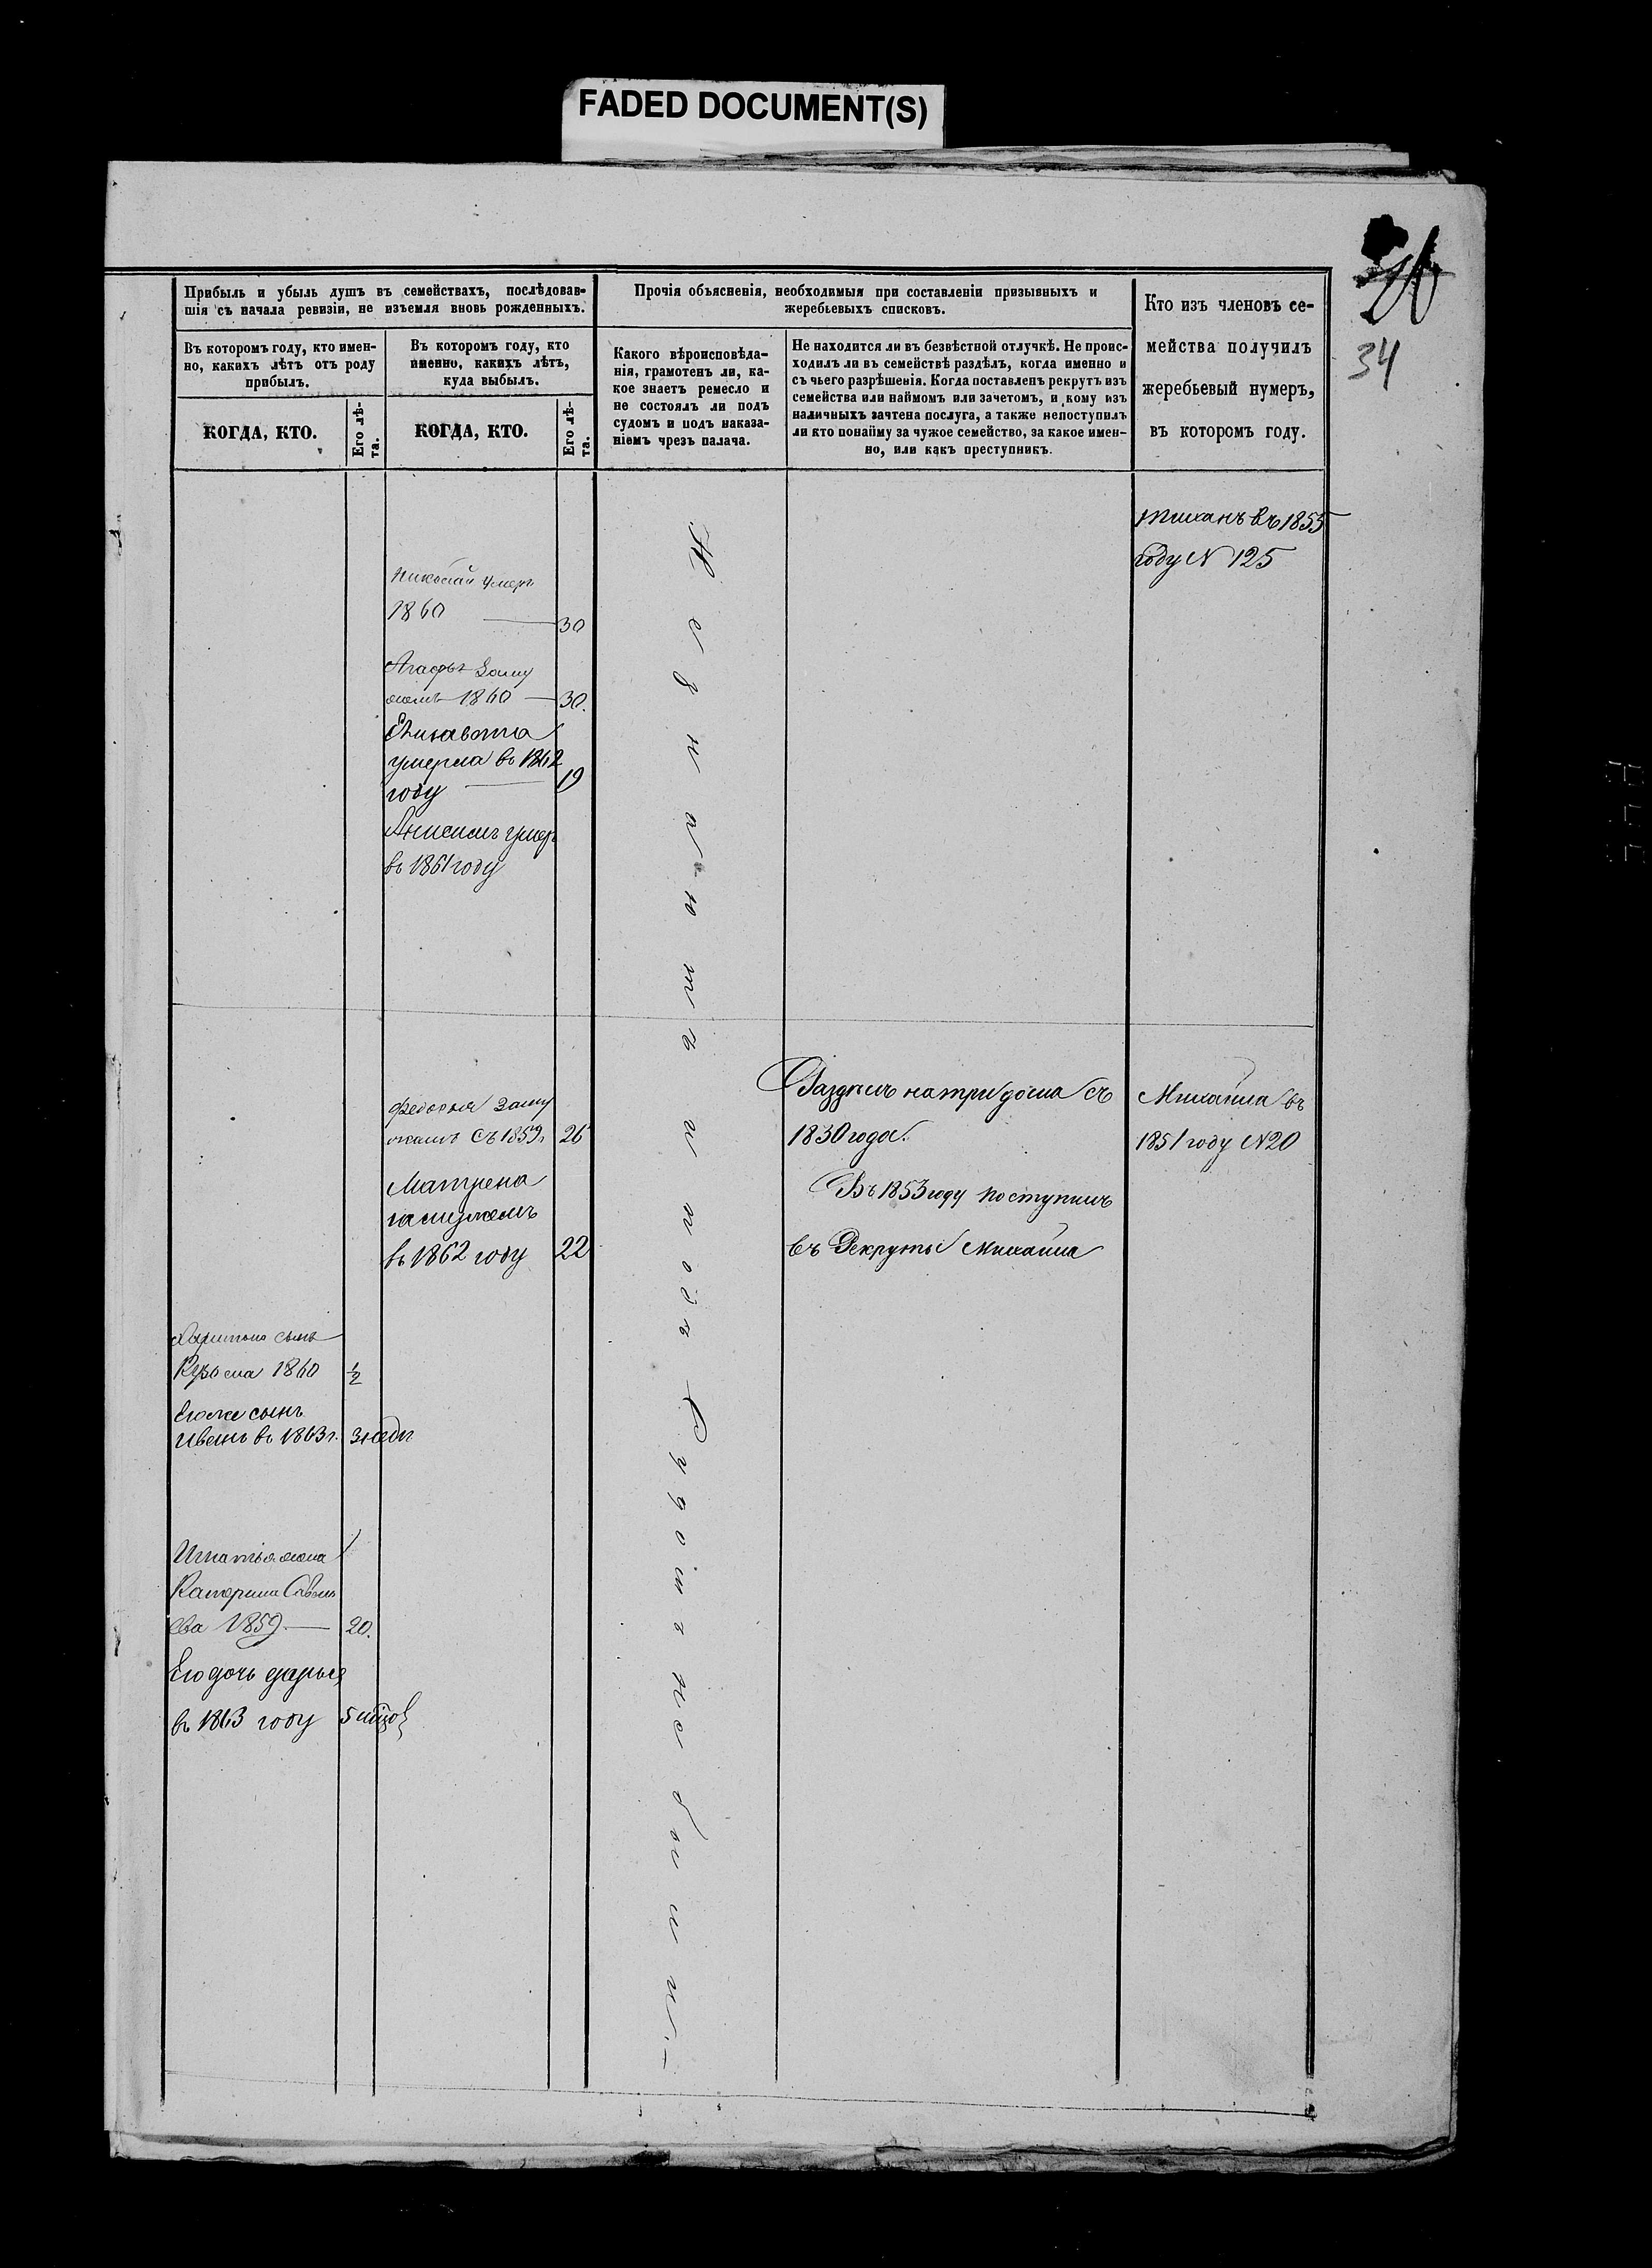 FADED DOCUMENT(S)
34
Прибыль и убыль душъ въ семействахъ, послѣдовав-
шія съ начала ревизіи, не изъемля вновь рожденныхъ.
Въ которомъ году, кто имен-
но, какихъ лѣтъ отъ роду
прибылъ.
КОГДА, КТО.
Его лѣ-
та.
Въ которомъ году, кто
именно, какихъ лѣтъ,
куда выбылъ.
КОГДА, КТО.
Его лѣ-
та.
Прочія объясненія, необходимыя при составленіи призывныхъ и
жеребьевыхъ списковъ.
Какого вѣроисповѣда-
нія, грамотенъ ли, ка-
кое знаетъ ремесло и
не состоялъ ли подъ
судомъ и подъ наказа-
ніемъ чрезъ палача.
Не находится ли въ безвѣстной отлучкѣ. Не проис-
ходилъ ли въ семействѣ раздѣлъ, когда именно и
съ чьего разрѣшенія. Когда поставленъ рекрутъ изъ
семейства или наймомъ или зачетомъ, и кому изъ
наличныхъ зачтена послуга, а также непоступилъ
ли кто понайму за чужое семейство, за какое имен-
но, или какъ преступникъ.
Кто изъ членовъ се-
мейства получилъ
жеребьевый нумеръ,
въ которомъ году.
въ 1855
году N 125
Николай умеръ
1860 30
заму
жемъ 1860 30.
Елисавета
умерла въ 1862
году 19
Анисимъ умеръ
въ 1861 году
заму
жемъ съ 1859г. 26
Матрена
замужемъ
въ 1862 году 22
Харитона сынъ
Кузьма 1860 ½
Егоже сынъ
Иванъ въ 1863г. 3 нед
Игнатья жена
Катерина Савель
ева 1859 20.
Его дочь дарья
въ 1863 году 5
и подъ Судомъ не были.
на три дома съ
1830 года.
Въ 1853 году поступилъ
въ Рекруты Михайла
Михайла въ
1851 году N 20